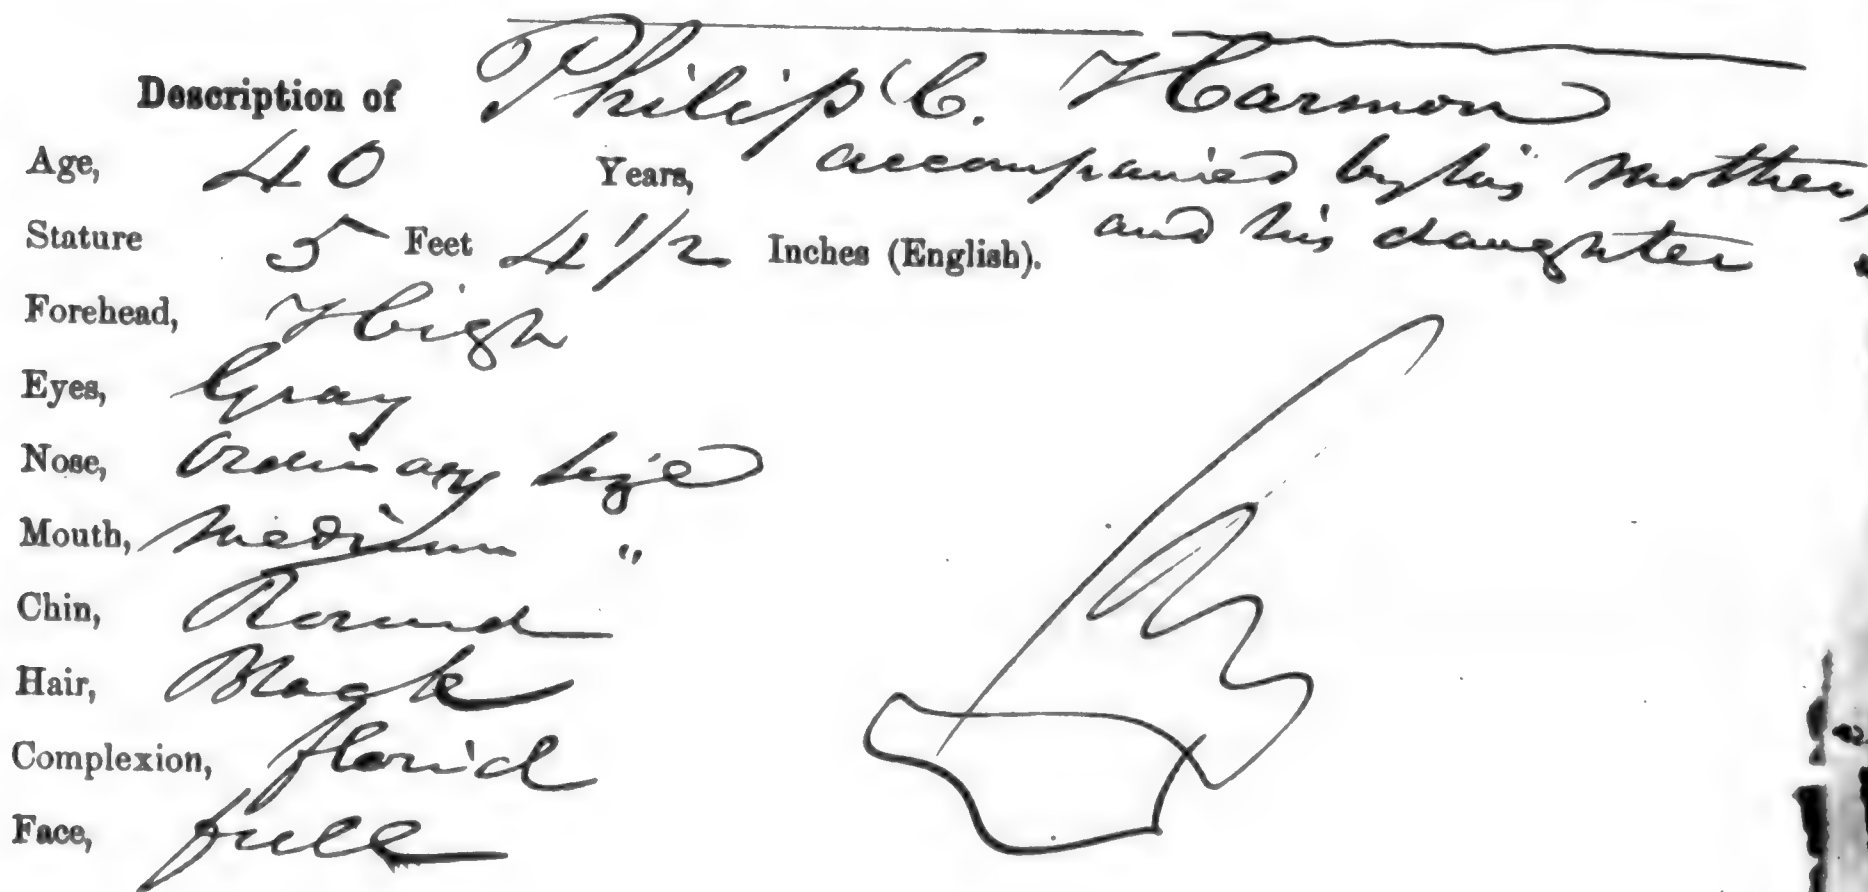 Description of Philip C. Harmon
Age, 40 Years, accompanied by his mother,
Stature 5 Feet 4 1/2 Inches (English). and his daughter
Forehead, High
Eyes, Gray
Nose, Ordinary size
Mouth, Medium "
Chin, Round
Hair, Black
Complexion, florid
Face, full